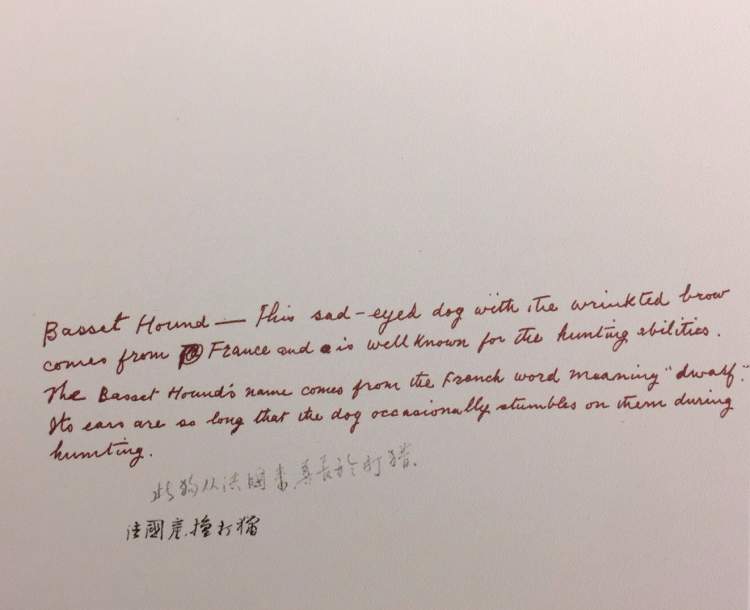 Basset Hound — This sad-eyed dog with the wrinkted brow
comes from France and is well known for the hunting abilities.
The Basset Hound's name comes from the French word meaning "dwarf".
Its ears are so long that the dog occasionally stumbles on them during
humting.
此狗从法國來 長於打猎.
法國產.擅打猫